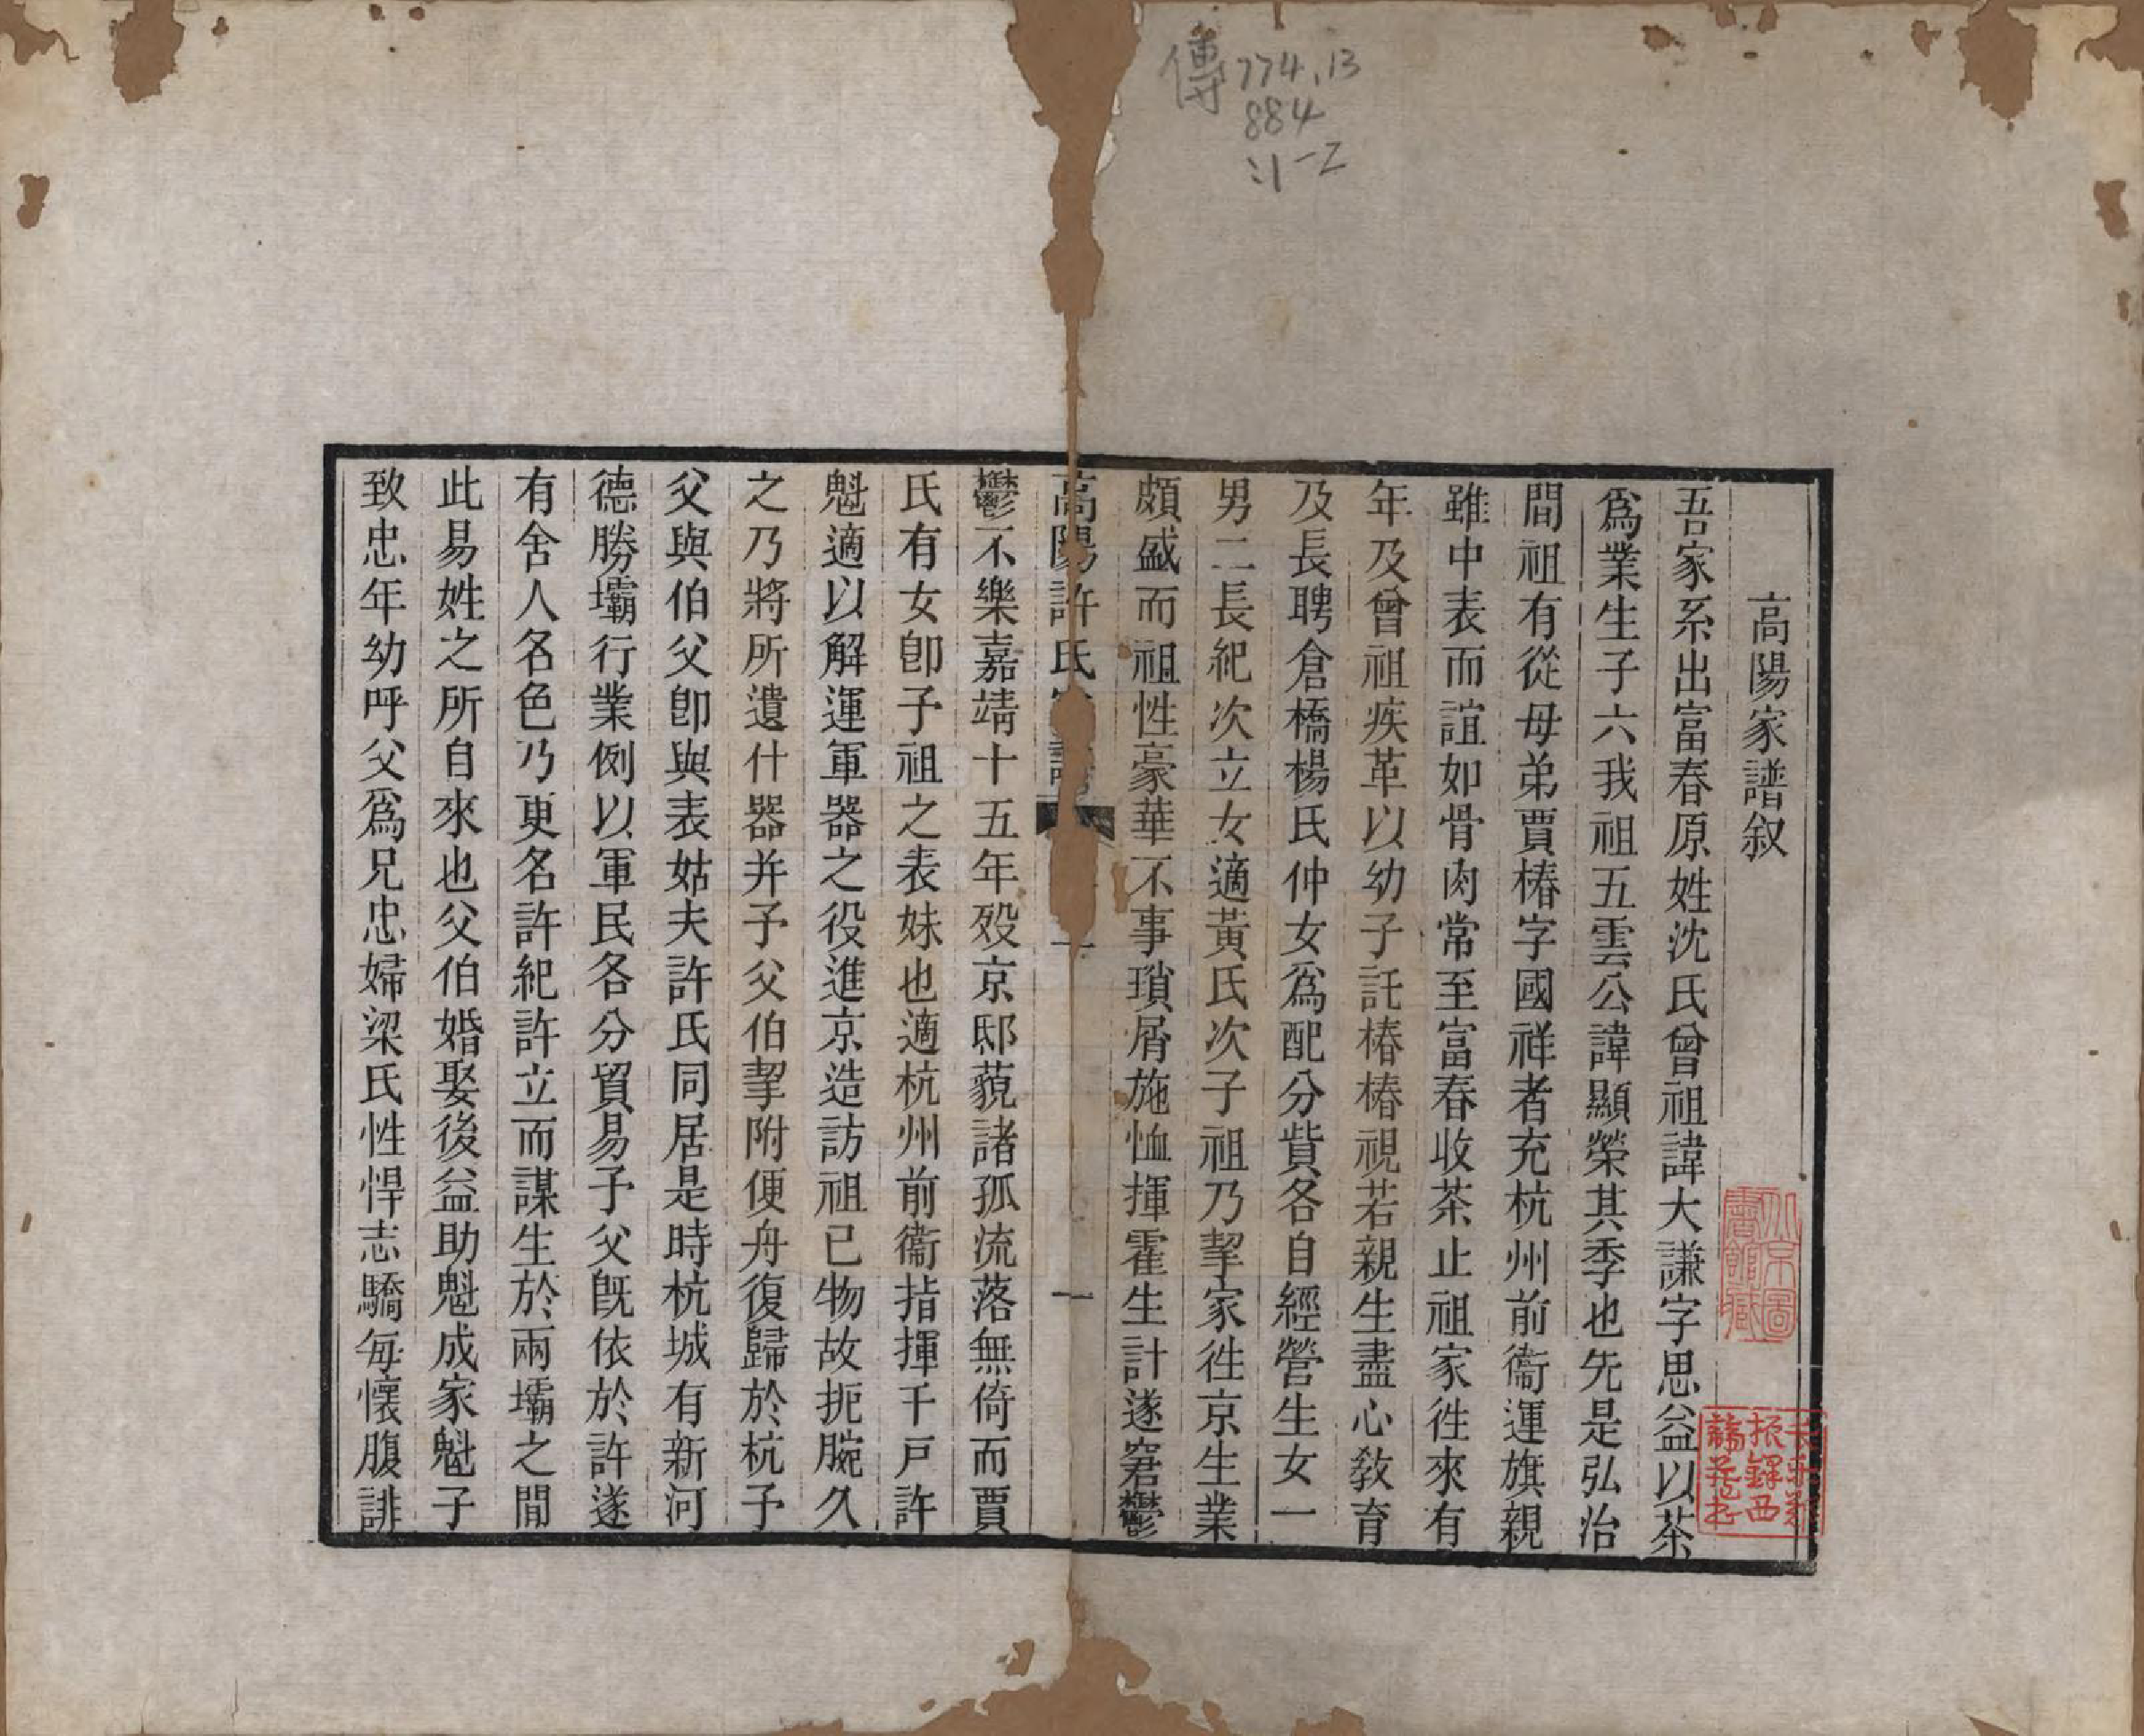 傳774.13
884
:1-2
高陽家譜叙
吾家系出富春原姓沈氏曾祖諱大謙字思益以茶
爲業生子六我祖五雲公諱顯榮其季也先是弘治
間祖有從母弟賈椿字國祥者充杭州前衞運旗親
雖中表而誼如骨肉常至富春收茶止祖家徃來有
年及曾祖疾革以幼子託椿椿視若親生盡心敎育
及長聘倉橋楊氏仲女爲配分貲各自經營生女一
男二長紀次立女適黃氏次子祖乃挈家徃京生業
頗盛而祖性豪華不事瑣屑施恤揮霍生計遂窘鬱
高陽許氏家譜
一
鬱不樂嘉靖十五年歿京邸藐諸孤流落無倚而賈
氏有女卽子祖之表妹也適杭州前衞指揮千戸許
魁適以解運軍器之役進京造訪祖已物故扼腕久
之乃將所遺什器并予父伯挈附便舟復歸於杭予
父與伯父卽與表姑夫許氏同居是時杭城有新河
德勝壩行業例以軍民各分貿易予父旣依於許遂
有舍人名色乃更名許紀許立而謀生於兩壩之間
此易姓之所自來也父伯婚娶後益助魁成家魁子
致忠年幼呼父爲兄忠婦梁氏性悍志驕每懷腹誹
北京圖書館藏
長樂鄭振鐸西諦藏書